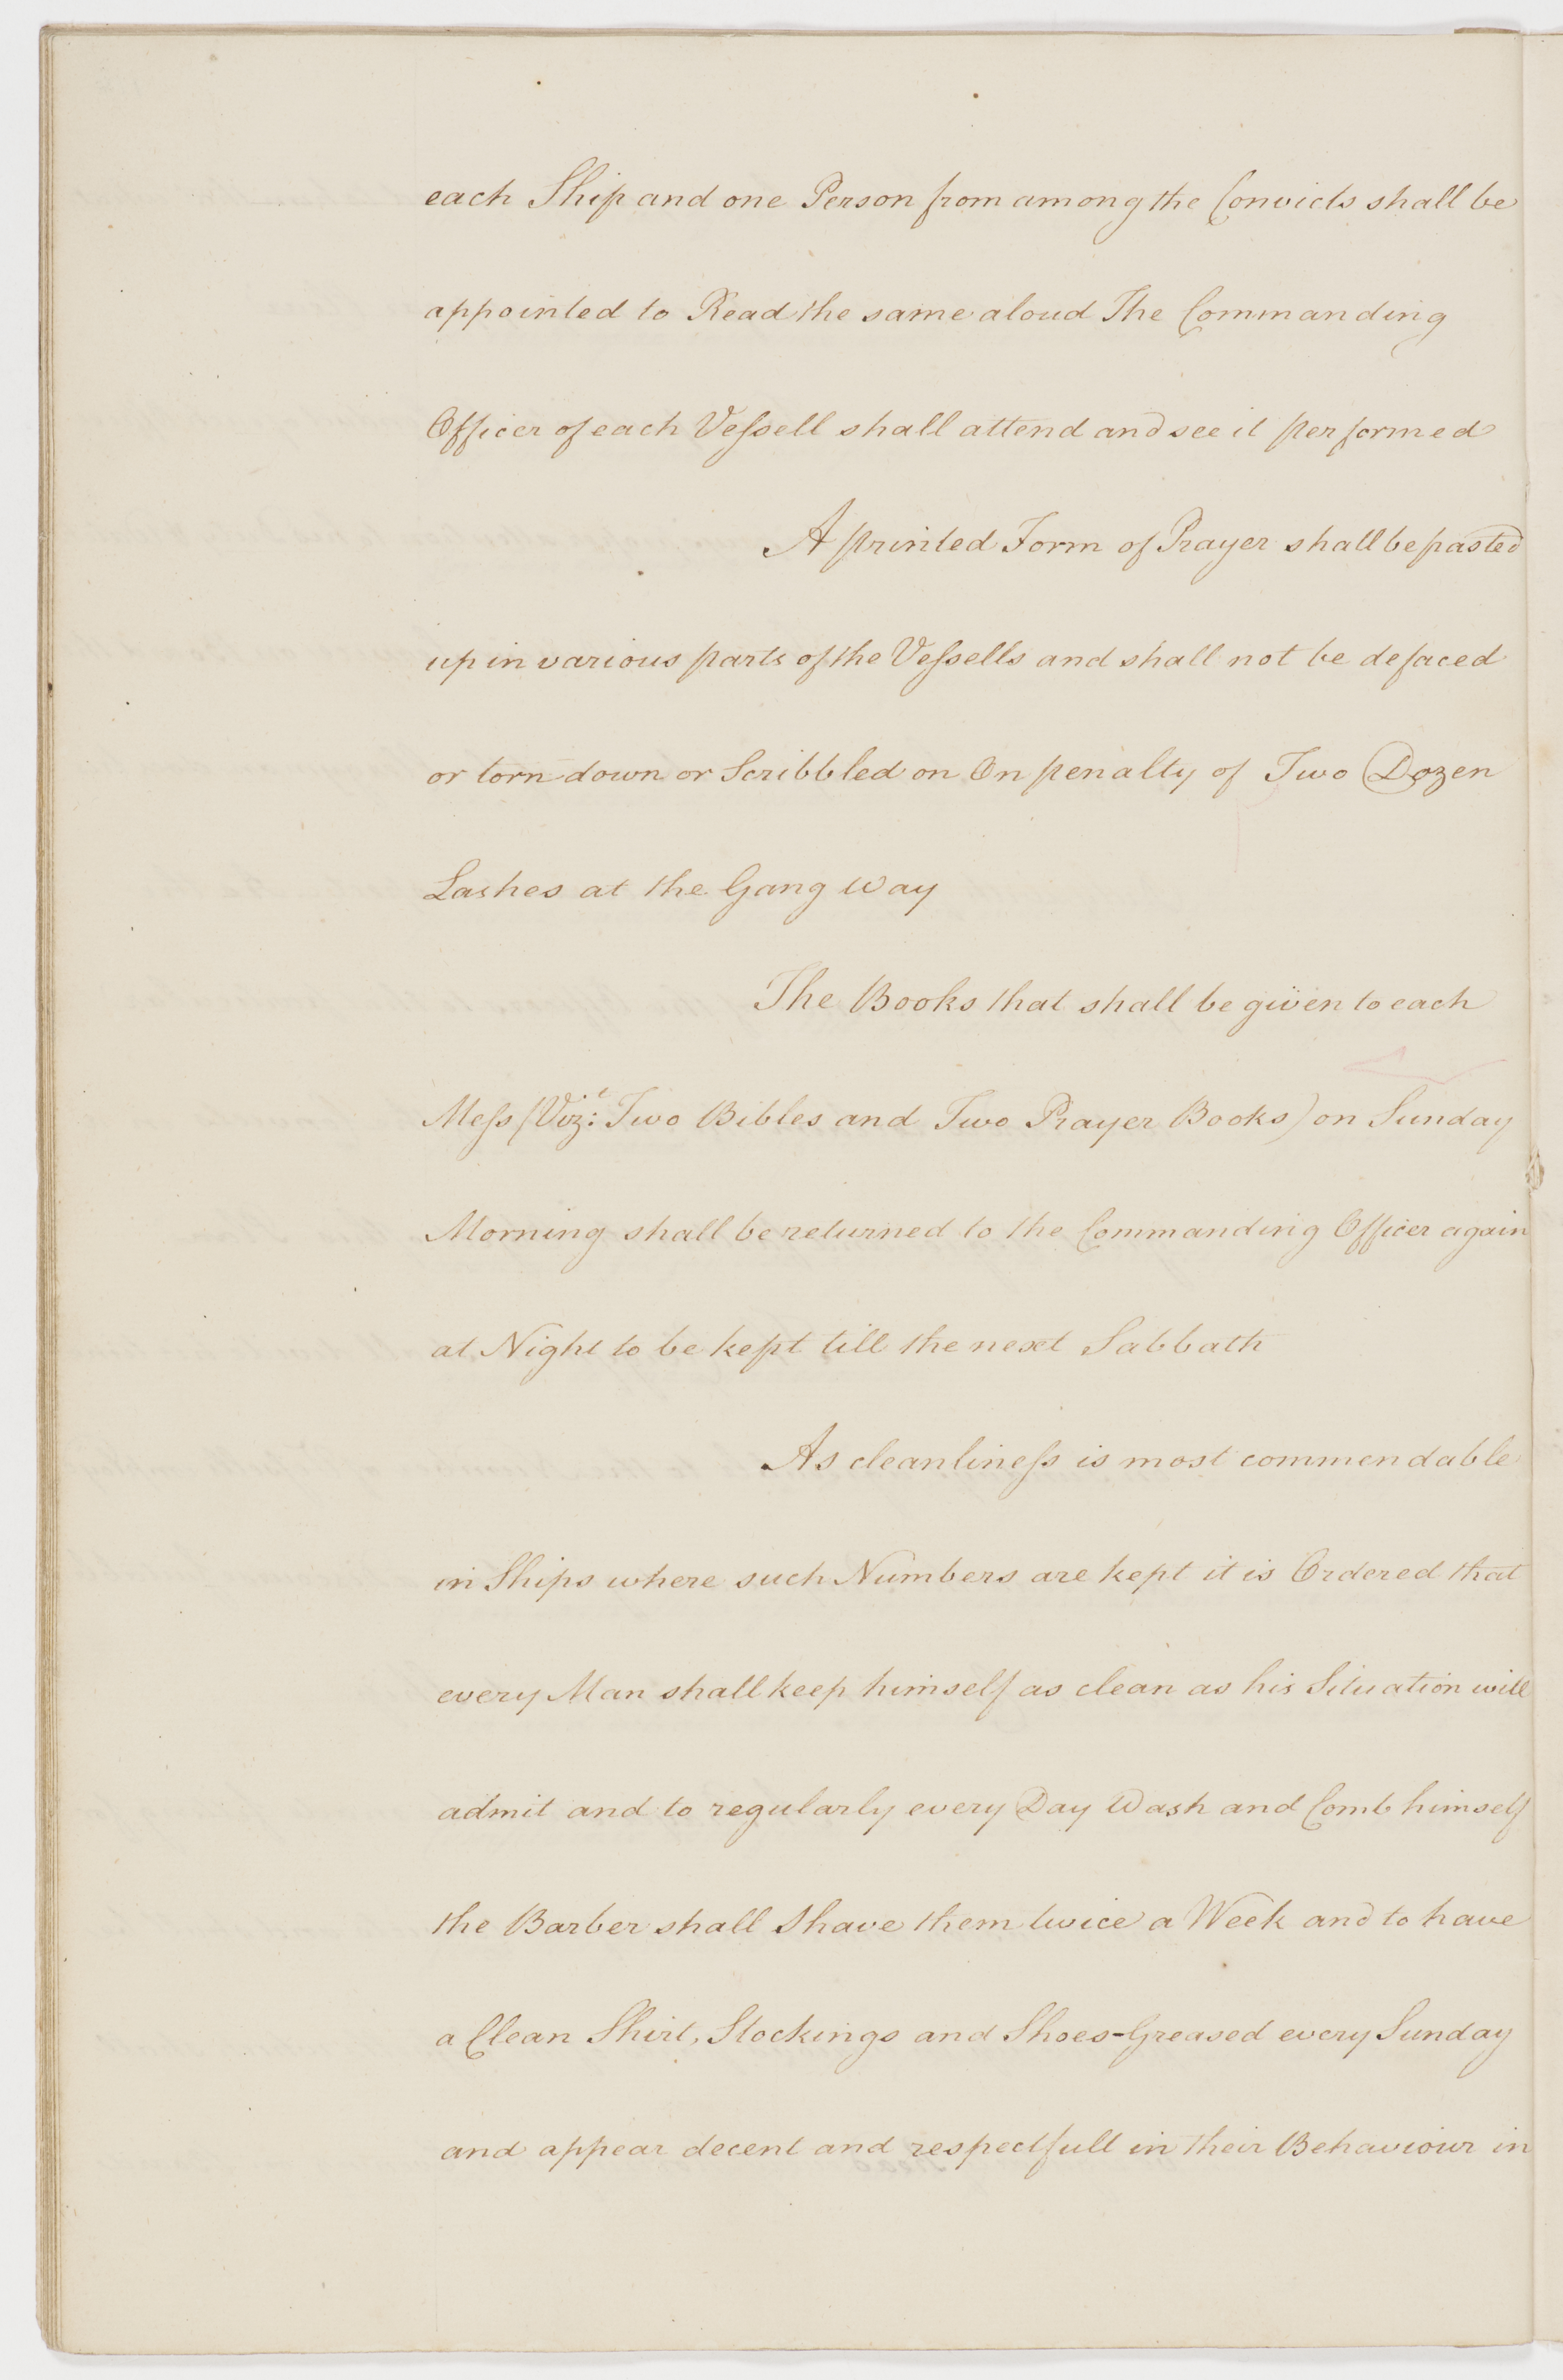 each Ship and one Person from among the Convicts shall be
appointed to Read the same aloud The Commanding
Officer of each Veſsell shall attend and see it performed
A printed Form of Prayer shall be pasted
up in various parts of the Veſsells and shall not be defaced
or torn down or Scribbled on On penalty of Two Dozen
Lashes at the Gang Way
The Books that shall be given to each
Meſs (Vizt: Two Bibles and Two Prayer Books) on Sunday
Morning shall be returned to the Commanding Officer again
at Night to be kept till the next Sabbath
As cleanlineſs is most commendable
in Ships where such Numbers are kept it is Ordered that
every Man shall keep himself as clean as his Situation will
admit and to regularly every Day Wash and Comb himself
the Barber shall Shave them twice a Week and to have
a Clean Shirt, Stockings and Shoes-Greased every Sunday
and appear decent and respectfull in their Behaviour in